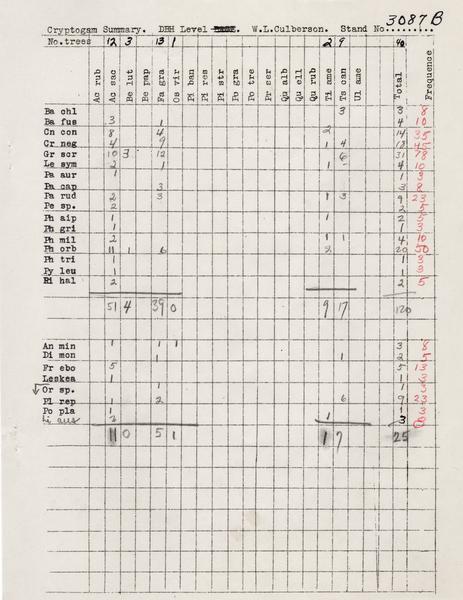 3087B
Cryptogam Summary. DBH Level W.L.Culberson. Stand No.
No. trees 12 3 13 1 2 9 40
Ac rub Ac sac Be lut Be pap Fa gra Os vir Pi ban Pi res Pi str Po gra Po tre Pr ser Qu alb Qu ell Qu rub Ti ame Ts can Ul ame Total Frequence
Ba chl 3 3 8
Ba fus 3 1 4 10
Cn con 8 4 2 14 35
Cr neg 4 9 1 4 18 45
Gr scr 10 3 12 6 31 78
Le sym 2 1 1 4 10
Pa aur 1 1 3
Pa cap 3 3 8
Pa rud 2 3 1 3 9 23
Pe sp. 2 2 5
Ph aip 1 1 2 5
Ph gri 1 1 3
Ph mil 2 1 1 4 10
Ph orb 11 1 6 2 20 50
Ph tri 1 1 3
Py leu 1 1 3
Ri hal 2 2 5
51 4 39 0 9 17 120
An min 1 1 1 3 8
Di mon 1 1 2 5
Fr ebo 5 5 13
Leskea 1 1 3
Or sp. 1 1 3
Pl rep 1 2 6 9 23
Po pla 1 1 3
2 1 3 8
11 0 5 1 1 7 25